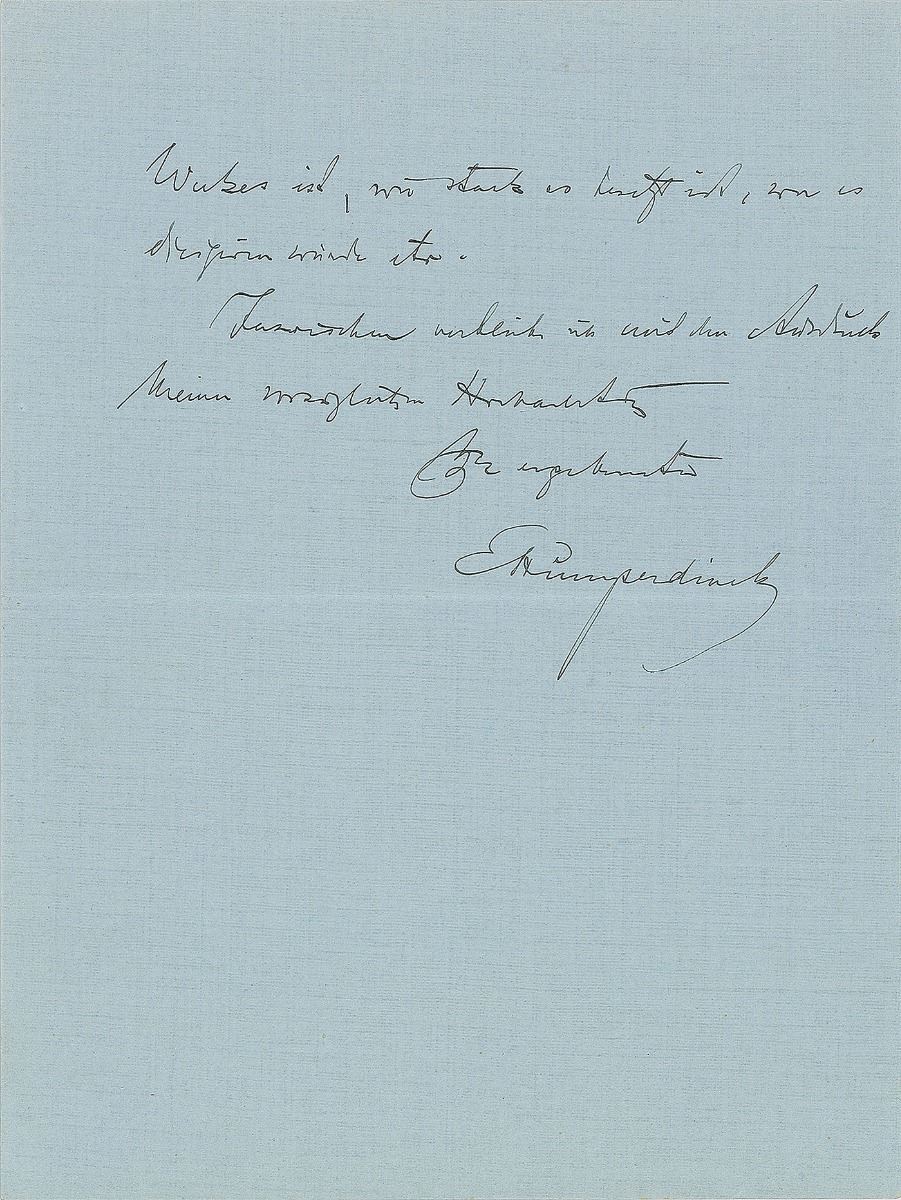 Werkes ist, wie stark es besetzt ist, wer es
dirigieren würde etc.
Inzwischen verbleibe ich mit dem Ausdruck
Meiner vorzüglichen Hochachtung
Ihr ergebenster
EHumperdinck